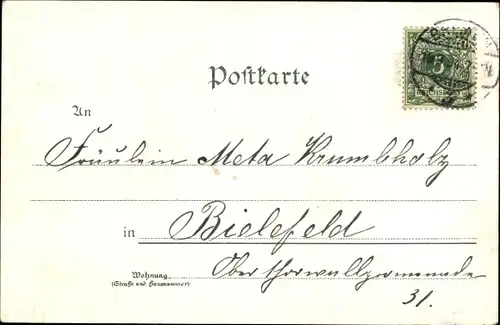 Postkarte
An
Fräulein Meta Krumbholz
in Bielefeld
Wohnung
(Straße und Hausnummer)
Oberthorwallpromenade
31.
5